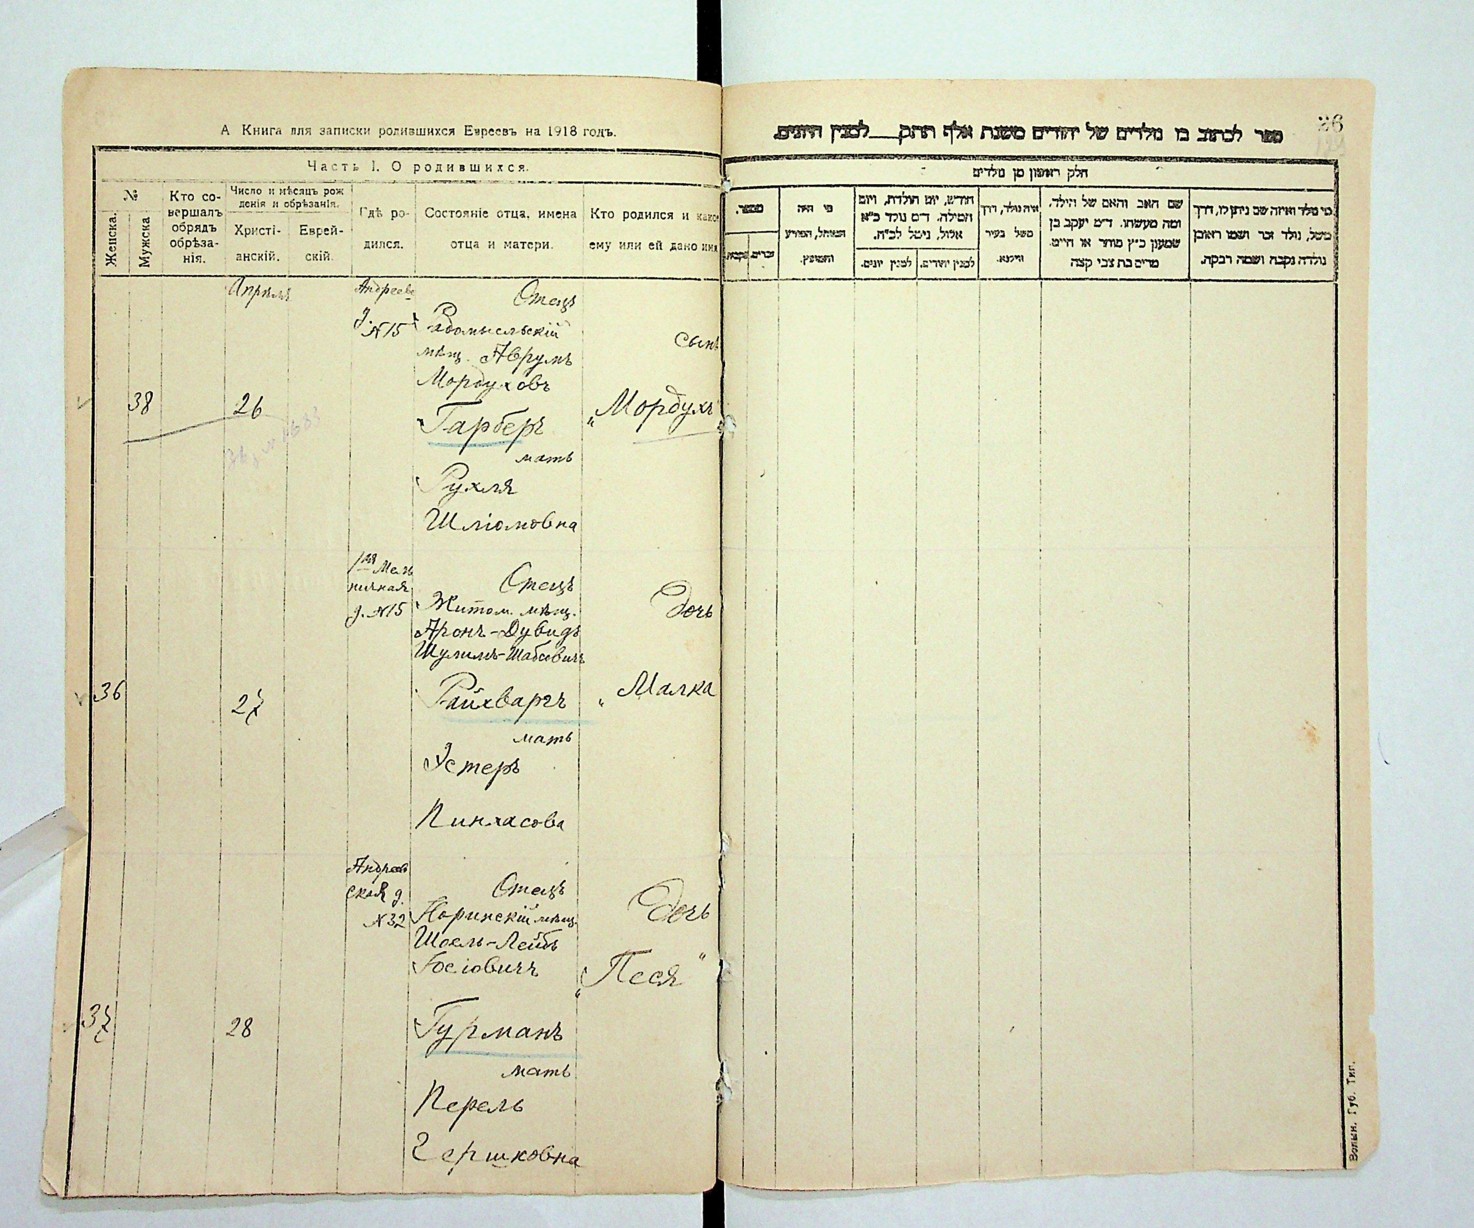 А Книга для записки родившихся Евреевъ на 1918 годъ.
Часть I. О родившихся.
№
Женска.
Мужска
Кто со-
вершалъ
обрядъ
обрѣза-
нія.
Число и мѣсяцъ рож
денія и обрѣзанія.
Христі-
анскій.
Еврей-
скій.
Гдѣ ро-
дился.
Состояніе отца, имена
отца и матери.
Кто родился и какое
ему или ей дано имя
38
Апрѣль
26
Андреевс
д. N15
Отецъ
Радомысльскій
мѣщ. Аврумъ
Мордуховъ
Гарберъ
мать
Рухля
Шліомовна
сынъ
„Мордухъ"
36
27
1ая Мель
ничная
д. N15
Отецъ
Житом. мѣщ.
Аронъ-Дувидъ
Шулимъ-Шабсевичъ
Райхваргъ
мать
Эстеръ
Пинхасова
Дочь
„Малка
37
28
Андреев
ская д.
N32
Отецъ
Норинскій мѣщ.
Шоель-Лейбъ
Іосіовичъ
Гурманъ
мать
Перель
Гершковна
Дочь
„Песя"
26
ספר לכתוב בו נולדים של יהודים משנת אלף תתק__למנין היונים.
חלק ראשון מן נולדים
מספר.
זכרים
נקבות.
מי היה
המוהל, הפורע
והמוצץ.
חודש, יום הולדת, ויום
המילה. ד״מ נולד כ״א
אלול, נימל לכ״ח.
למנין יונים.
למנין יהודים.
איה נולד, דרך
משל בעיר
ווילנא.
שם האב והאם של הילד.
ומה מעשהו. ד״מ יעקב בן
שמעון כ״ץ סוחר או חייט.
מרים בת צבי קצה
מי נולד ואיזה שם ניתן לו, דרך
משל, נולד זכר ושמו ראובן
נולדה נקבה ושמה רבקה.
Волын. Губ. Тип.